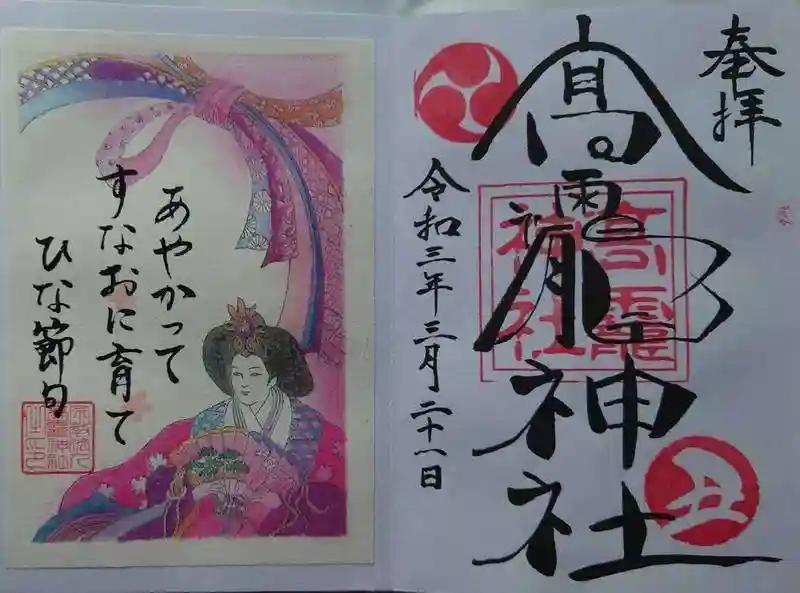 奉拝
髙龗神社
高龗
神社
丑
令和三年三月二十一日
あやかって
すなおに育て
ひな節句